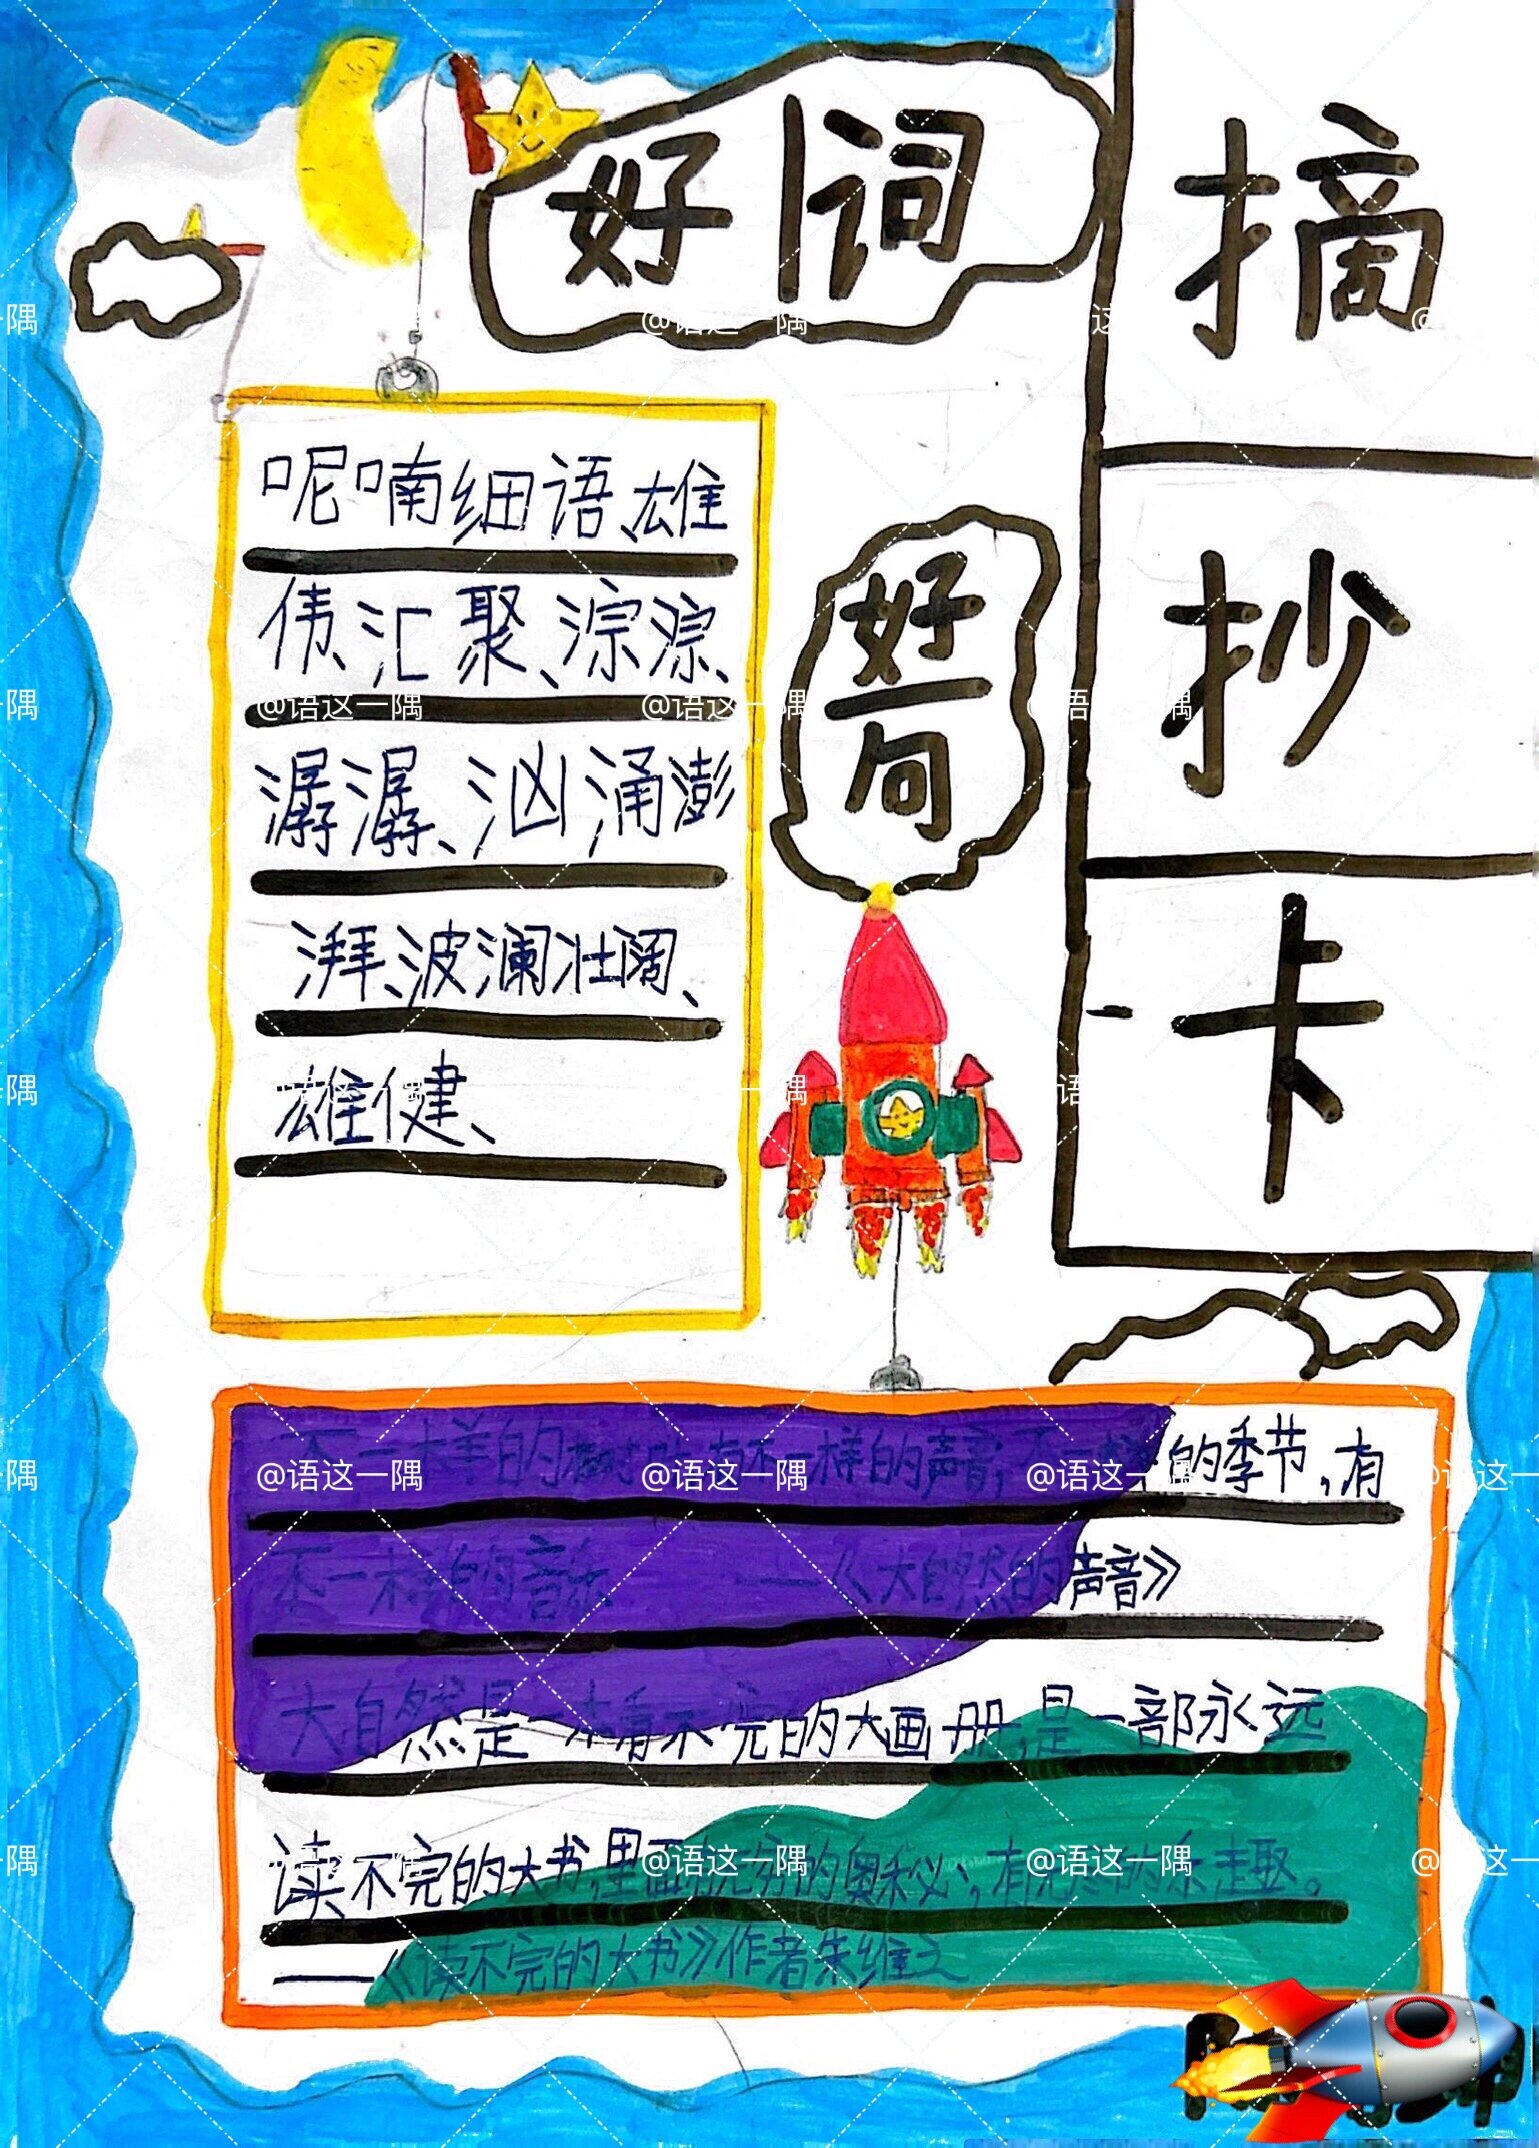 摘
抄
卡
好词
呢喃细语、雄
伟、汇聚、淙淙、
潺潺、汹涌澎
湃、波澜壮阔、
雄健、
好
句
不一样的树叶,有不一样的声音;不一样的季节,有
不一样的音乐。——《大自然的声音》
大自然是一本看不完的大画册,是一部永远
读不完的大书,里面有无穷的奥秘,有无尽的乐趣。
——《读不完的大书》作者朱维之
@语这一隅